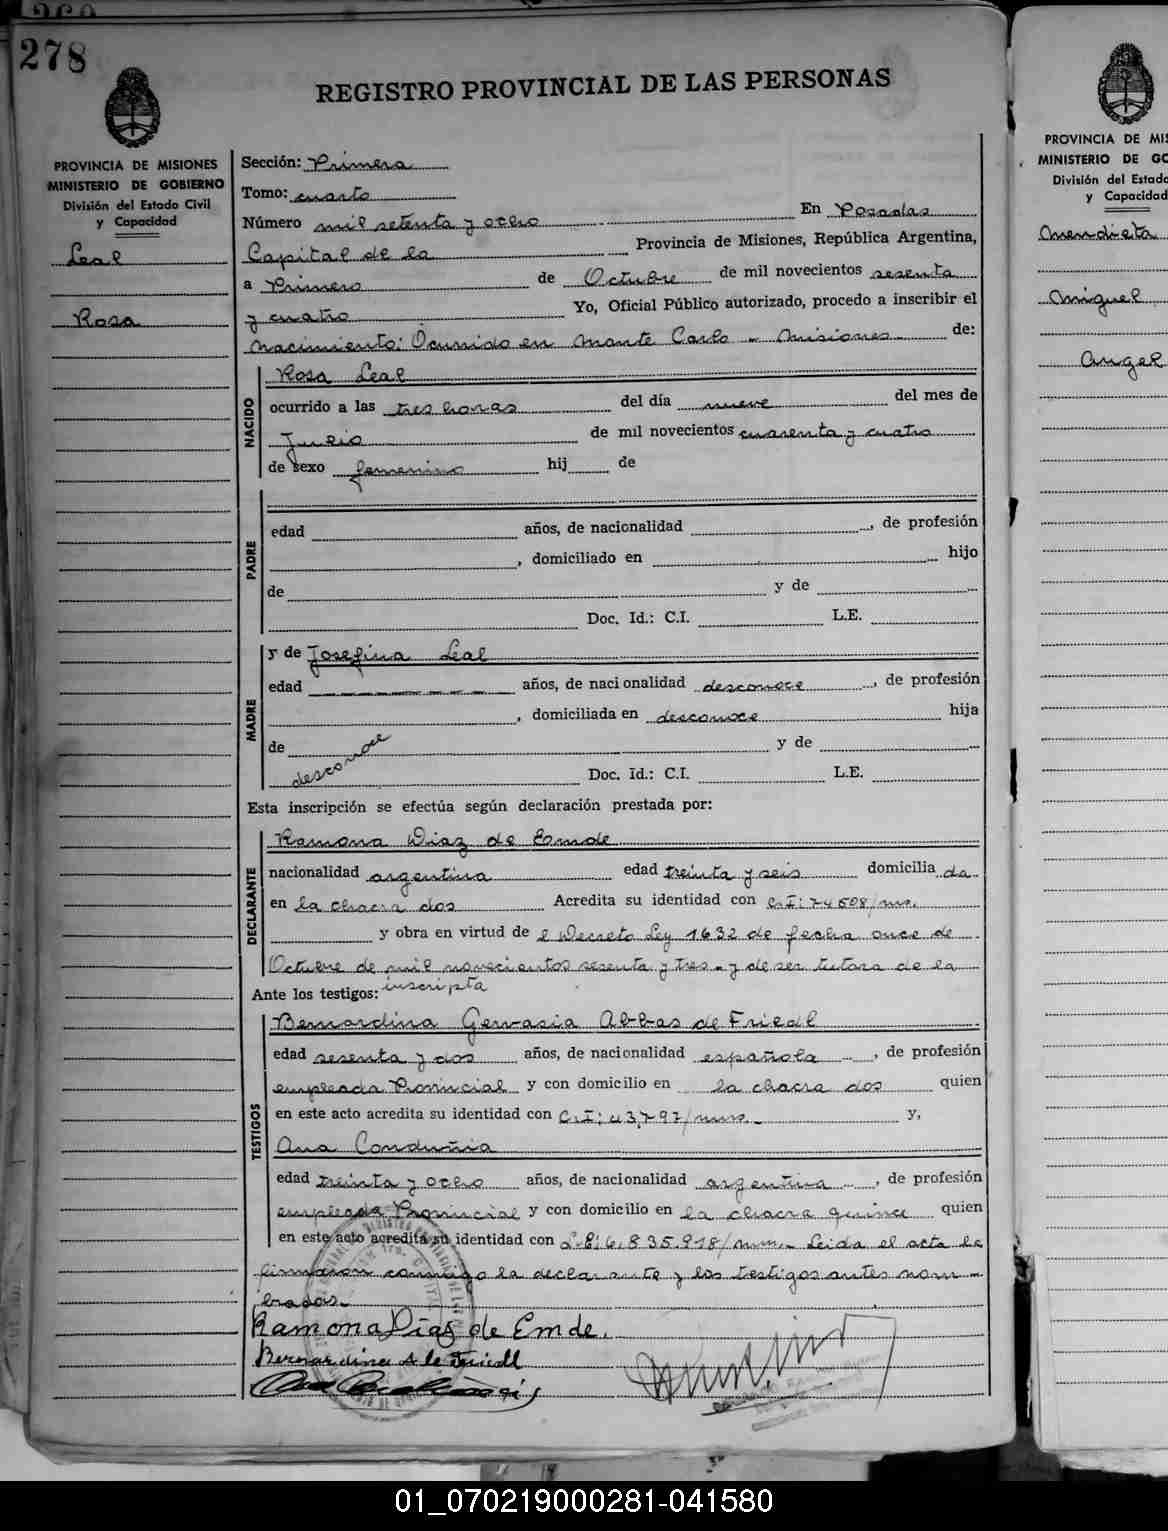 278
REGISTRO PROVINCIAL DE LAS PERSONAS
PROVINCIA DE MISIONES
MINISTERIO DE GOBIERNO
División del Estado Civil
y Capacidad
Leal
Rosa
Sección: Primera
Tomo: cuarto
Número mil setenta y ocho En Posadas
Capital de la Provincia de Misiones, República Argentina,
a Primero de Octubre de mil novecientos sesenta
y cuatro Yo, Oficial Público autorizado, procedo a inscribir el
nacimiento: Ocurrido en Monte Carlo - Misiones - de:
NACIDO
Rosa Leal
ocurrido a las tres horas del día nueve del mes de
Julio de mil novecientos cuarenta y cuatro
de sexo femenino hij de
PADRE
edad años, de nacionalidad , de profesión
, domiciliado en hijo
de y de
Doc. Id.: C.I. L.E.
MADRE
y de Josefina Leal
edad años, de nacionalidad desconoce , de profesión
, domiciliada en desconoce hija
de y de
desconoce Doc. Id.: C.I. L.E.
Esta inscripción se efectúa según declaración prestada por:
DECLARANTE
Ramona Diaz de Emde
nacionalidad argentina edad treinta y seis domicilia da
en la chacra dos Acredita su identidad con C.I: 74508/ms.
y obra en virtud de l Decreto Ley 1632 de fecha once de
Octubre de mil novecientos sesenta y tres - y de ser tutora de la
inscripta
Ante los testigos:
TESTIGOS
Bernardina Gervasia Abbas de Friedl
edad sesenta y dos años, de nacionalidad española , de profesión
empleada Provincial y con domicilio en la chacra dos quien
en este acto acredita su identidad con C.I: 43,797/mns. - y,
Ana
edad treinta y ocho años, de nacionalidad argentina , de profesión
empleada Provincial y con domicilio en la chacra quince quien
en este acto acredita su identidad con L.E; 6,835.918/mm. - Leida el acta la
firmaron conmigo la declarante y los testigos antes nom -
brados. -
Ramona Días de Emde.
Bernardina A de Friedl
PROVINCIA DE MIS
MINISTERIO DE GO
División del Estado
y Capacidad
Mendieta
Miguel
Angel
01_070219000281-041580